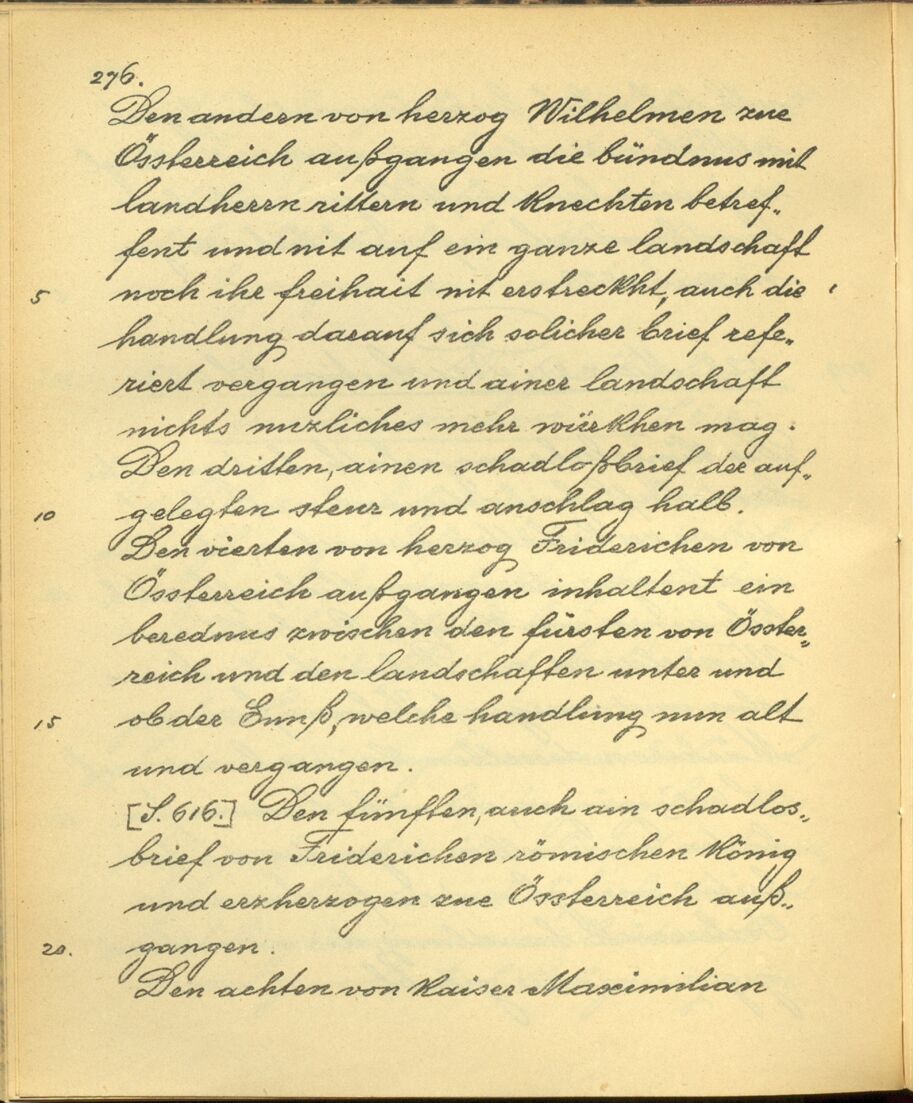 276.
Den andern von herzog Wilhelmen zue
Össterreich außgangen die bündnus mit
landherrn rittern und knechten betref„
fent und nit auf ein ganze landschaft
5 noch ihr freihait nit erstreckht, auch die
handlung darauf sich solicher brief refe„
riert vergangen und ainer landschaft
nichts nuzliches mehr würkhen mag.
Den dritten, ainen schadloßbrief der auf„
10 gelegten steur und anschlag halb.
Den vierten von herzog Friderichen von
Össterreich außgangen inhaltent ein
berednus zwischen den fürsten vonÖsster„
reich und den landschaften unter und
15 ob der Ennß, welche handlung nun alt
und vergangen.
[S. 616.] Den fünften, auch ain schadlos„
brief von Friderichen römischen König
und erzherzogen zue Össterreich auß„
20. gangen.
Den achten von Kaiser Maximilian